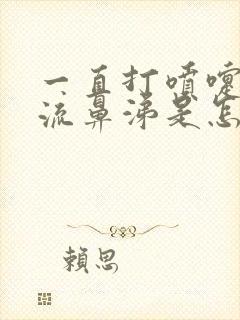 一直打噴嚏
流鼻涕是怎
賴思